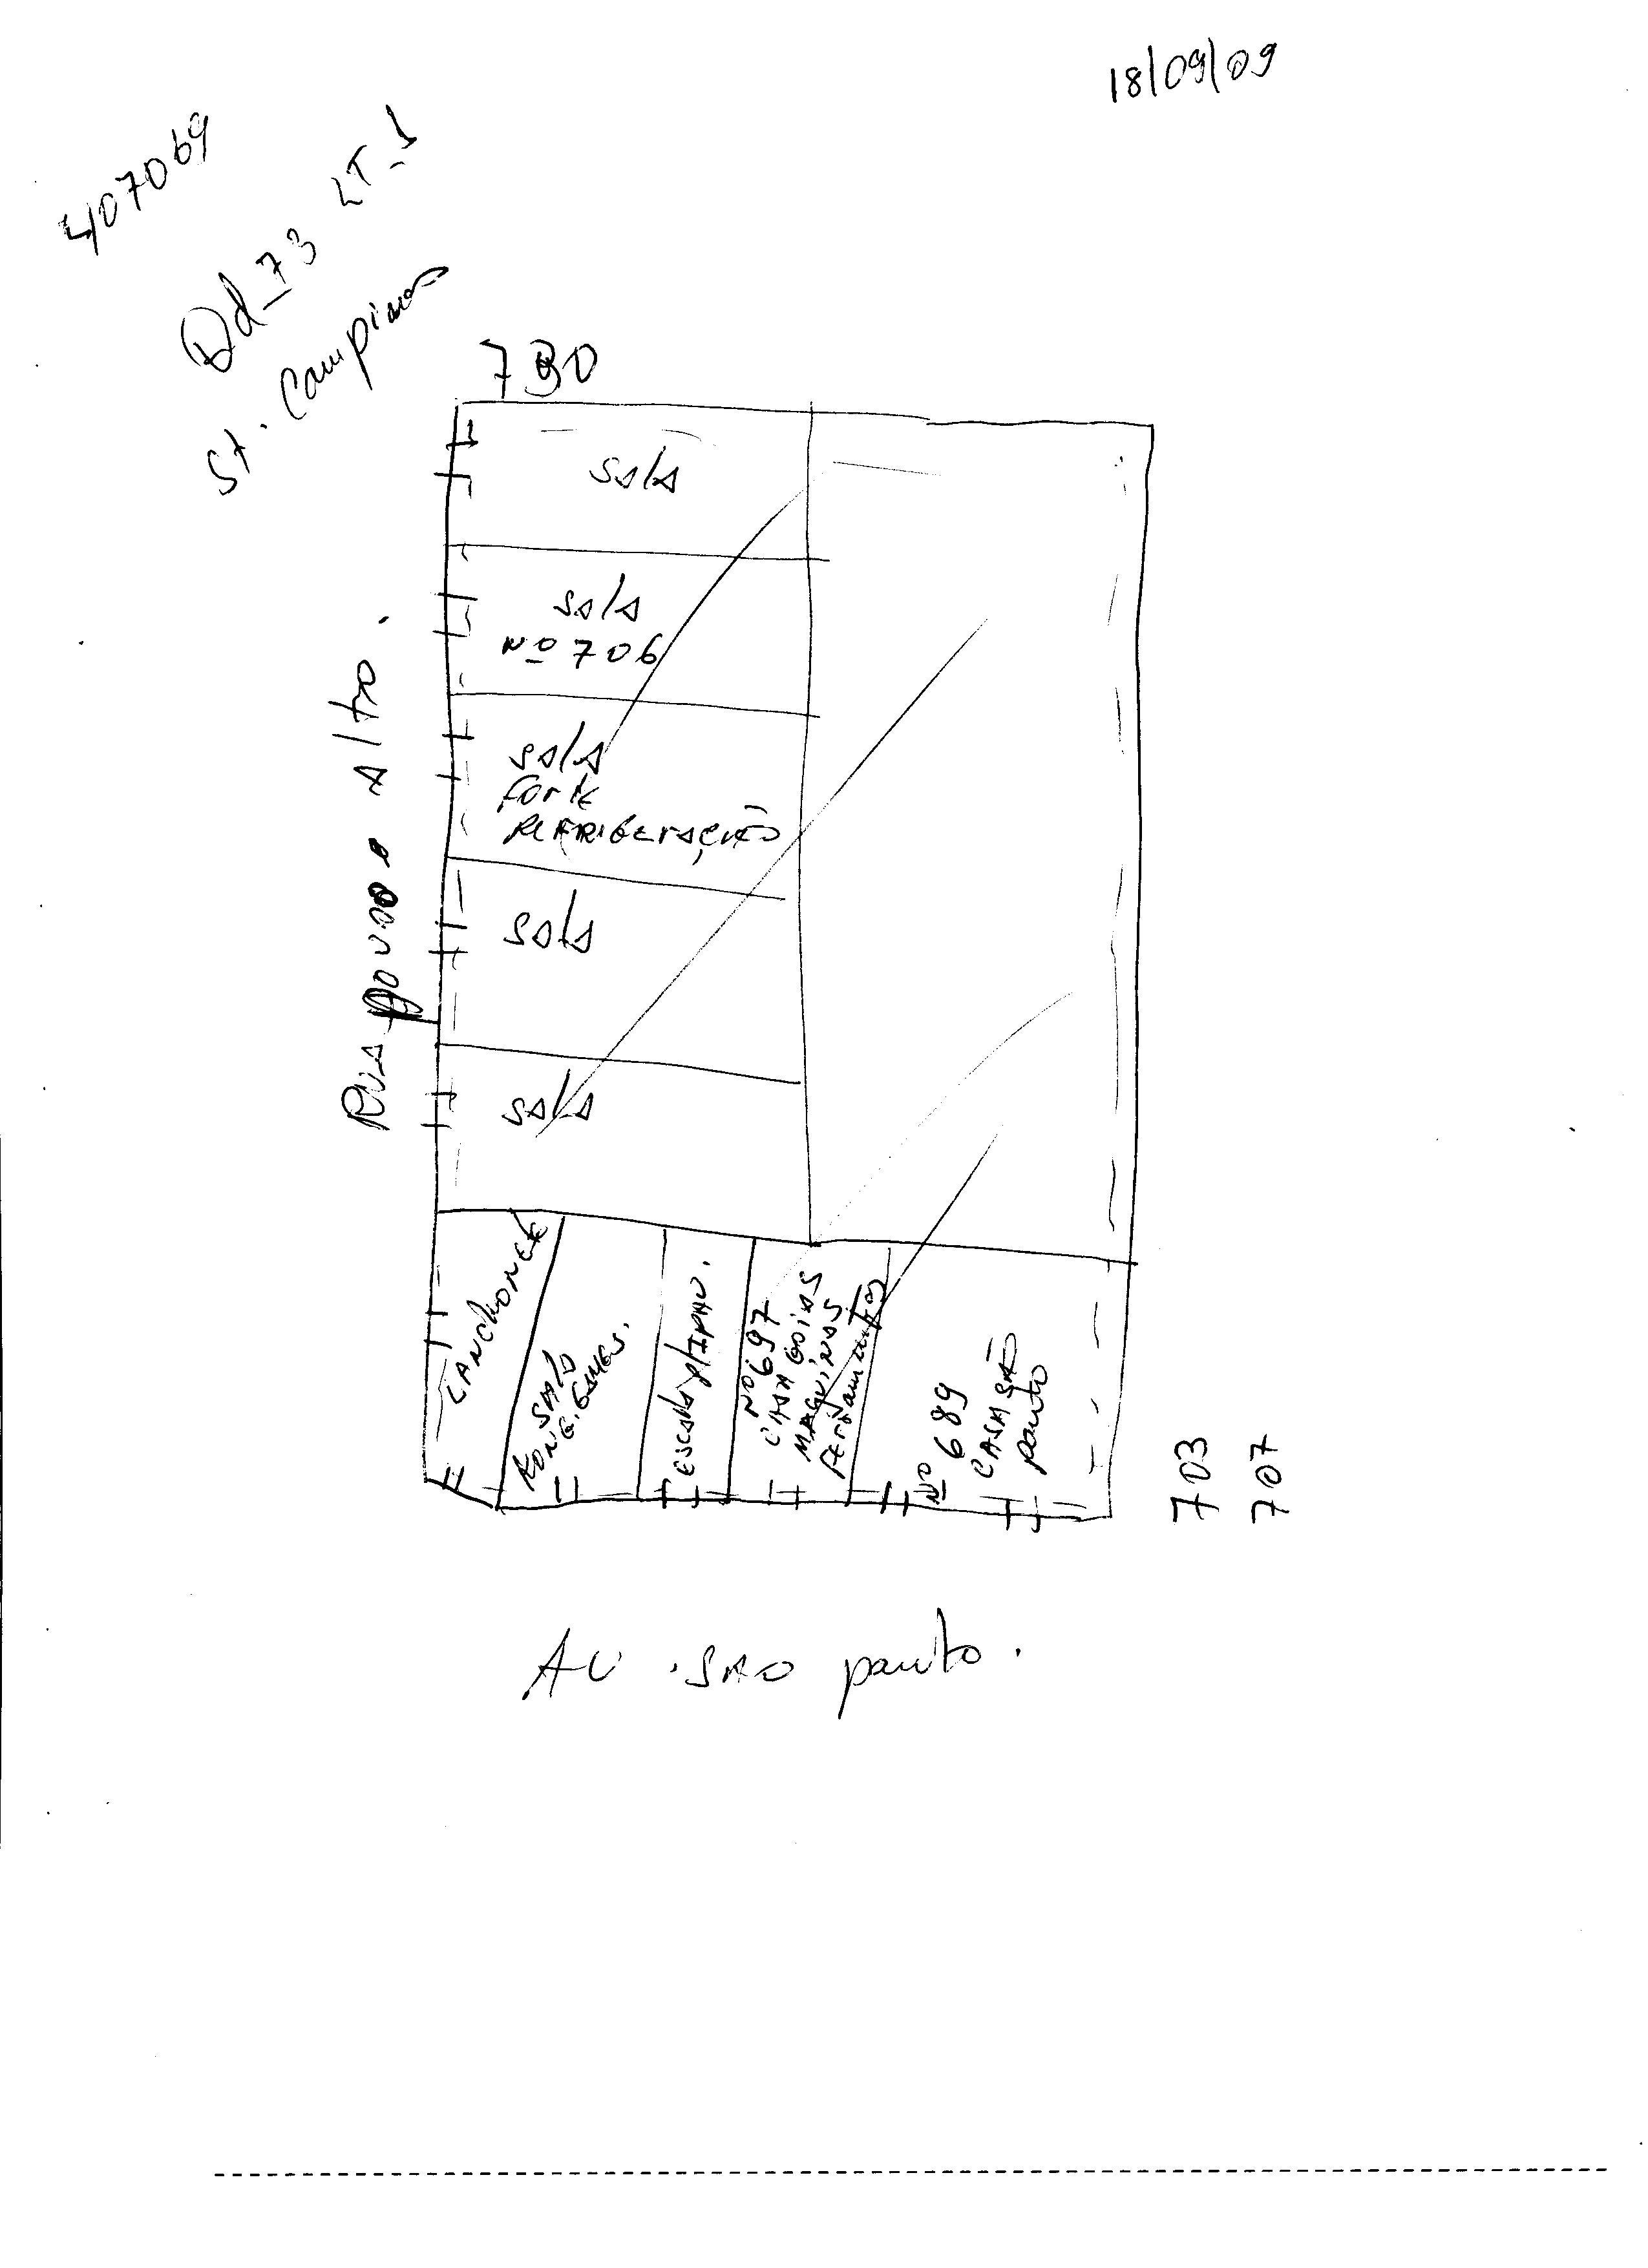 18/09/09
407069
Qd_73 LT_1
St. Campinas
730
sala
sala
Nº 706
sala
forte
REFRIGERAÇÃO
sala
sala
RUA Pouso Alto.
LANCHONETE
SALA
GAMES.
ESCADA p/1º PAV.
Nº 697
CASA GOIAS
MAQUINAS
FERRAMENTAS
Nº 689
CASA SÃO
paulo
703
707
AV. SÃO paulo.